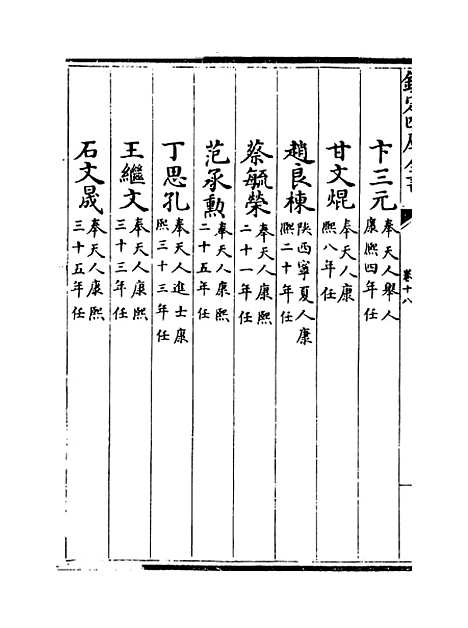 欽定四庫全書
卷十八
卞三元 奉天人舉人康熙四年任
甘文焜 奉天人康熙八年任
趙良棟 陜西寧夏人康熙二十年任
蔡毓榮 奉天人康熙二十一年任
范承勲 奉天人康熙二十五年任
丁思孔 奉天人進士康熙三十三年任
王繼文 奉天人康熙三十三年任
石文晟 奉天人康熙三十五年任